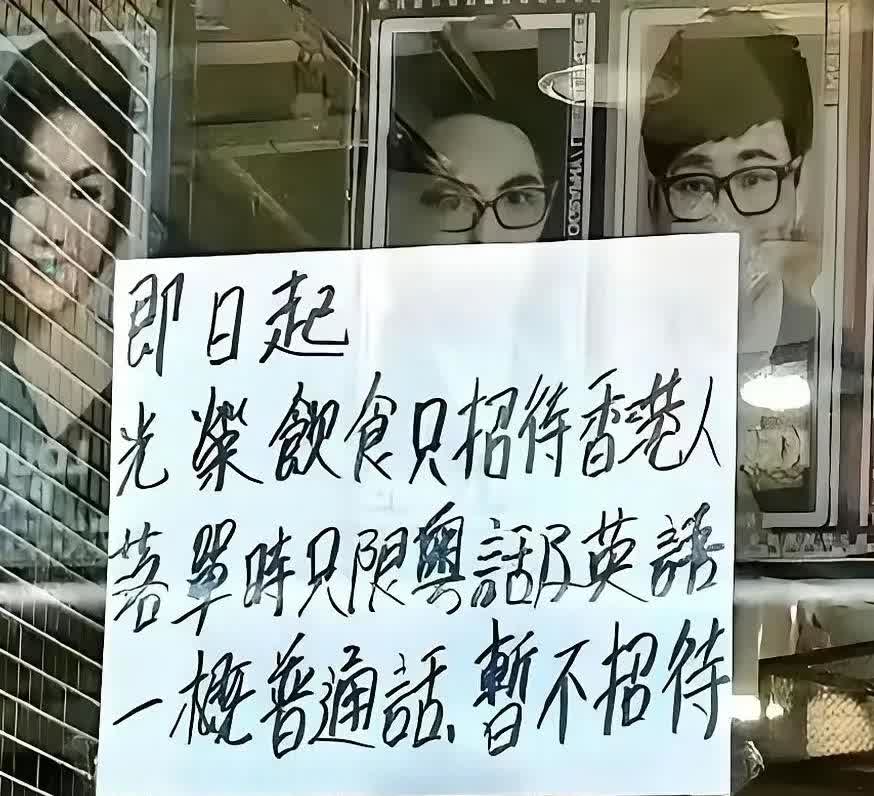 即日起
光榮飲食只招待香港人
落單時只限粵話及英語
一概普通話、暫不招待